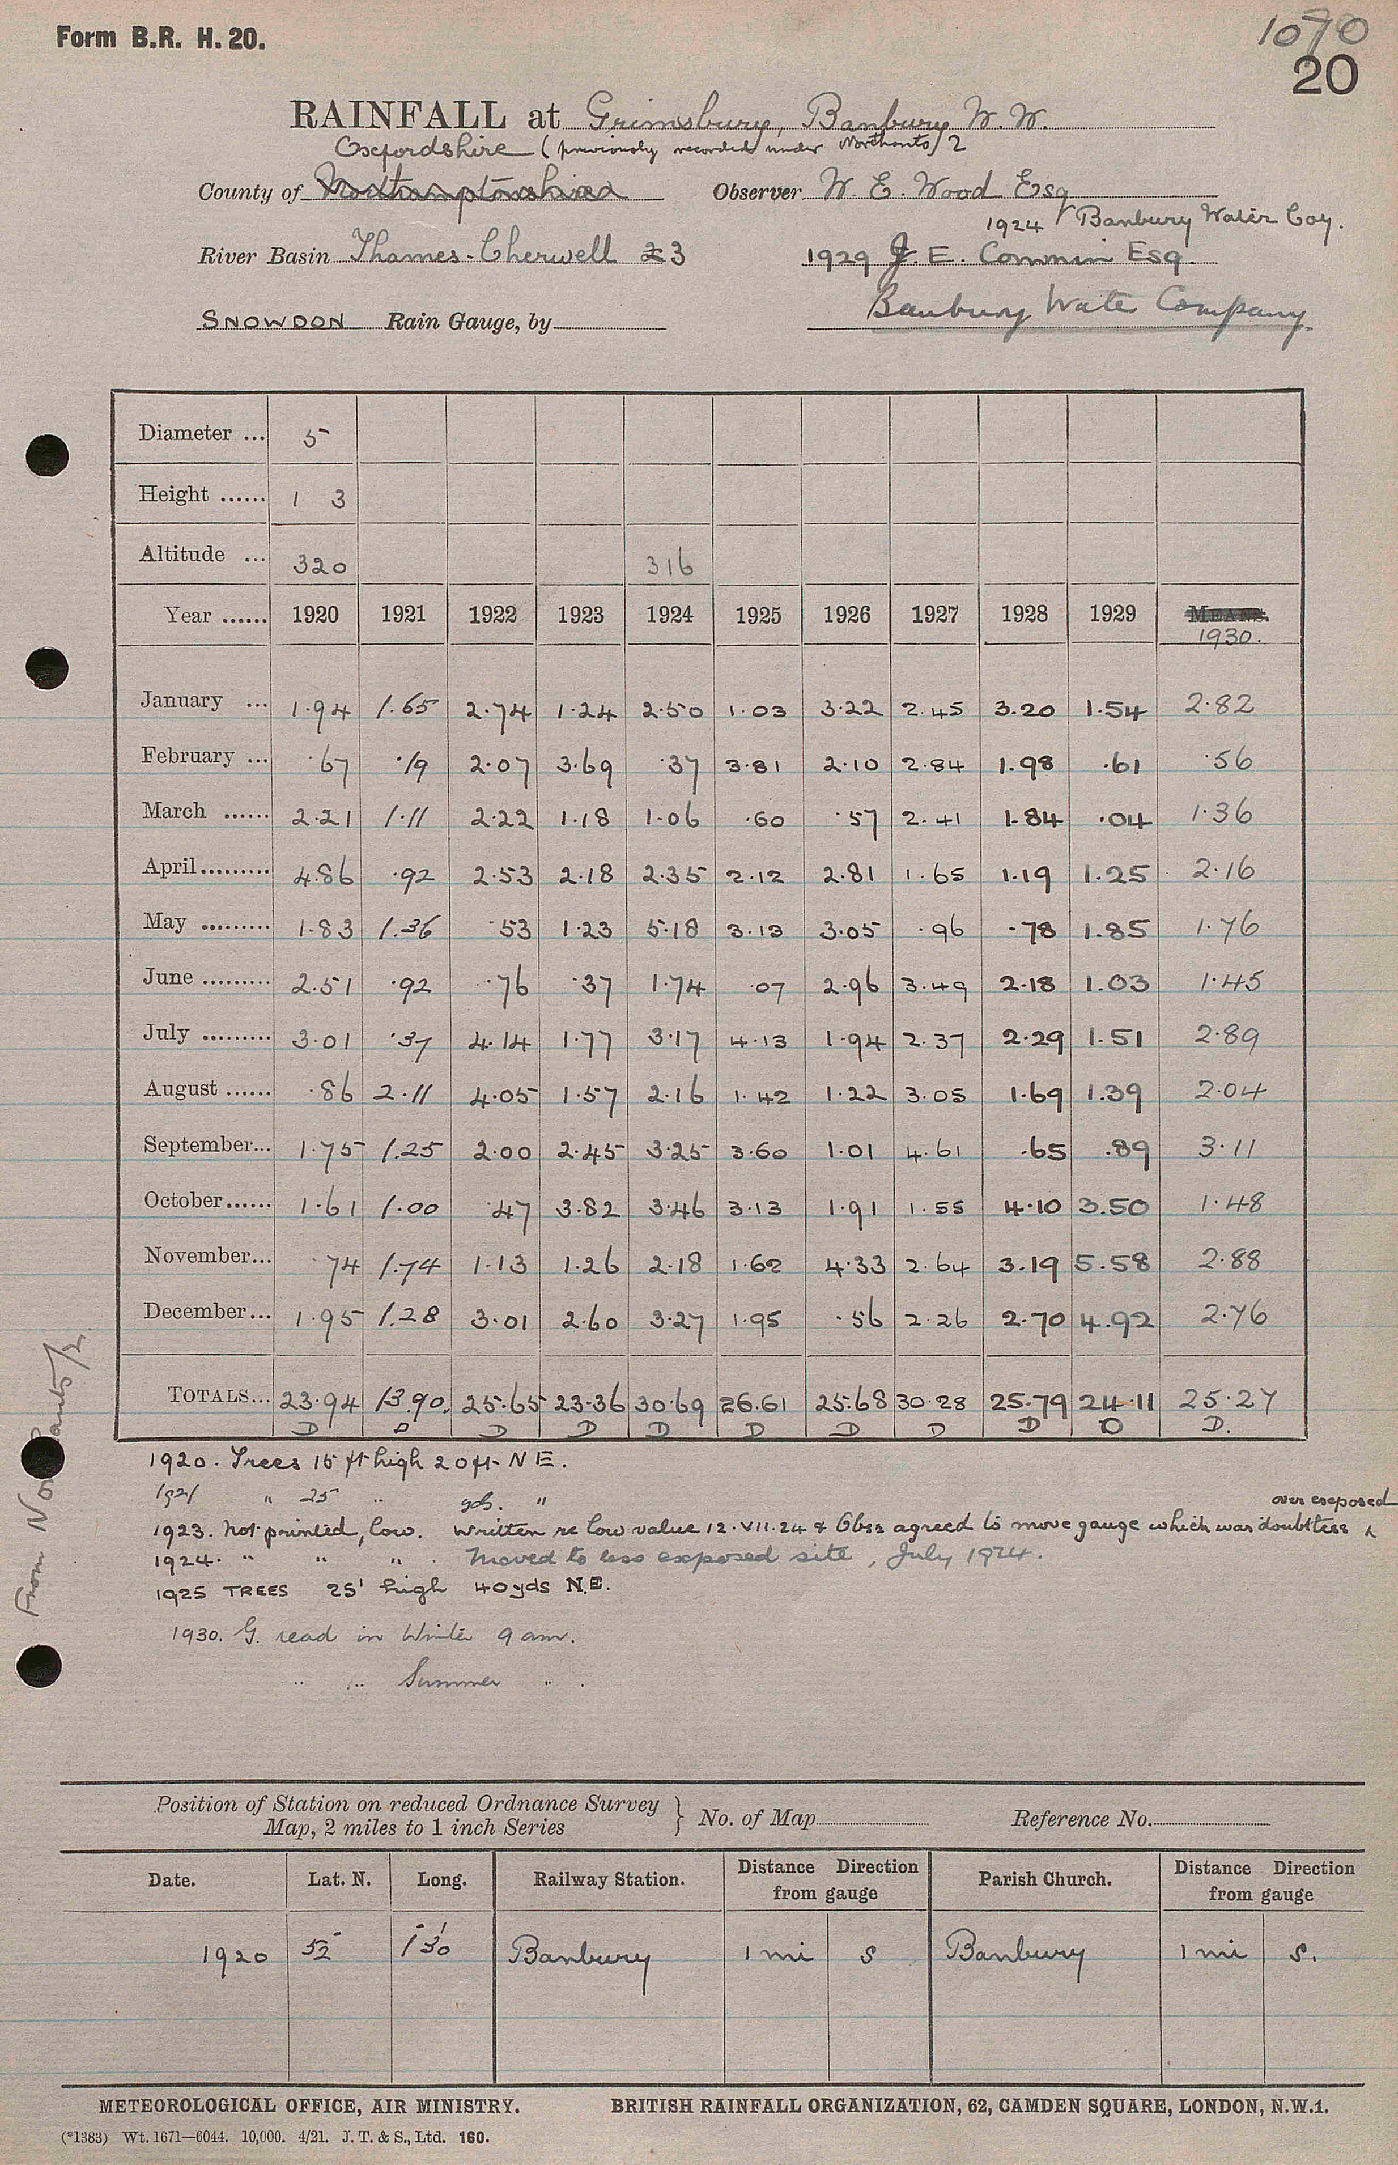 Form B.R. H. 20.
1070
20
RAINFALL at Grimsbury, Banbury W. W.
Oxfordshire (previously recorded under Northants) 2
County of Northamptonshire Observer W. E. Wood Esq
1924 Banbury Water Coy.
River Basin Thames - Cherwell 2 3 1929 J. E. Commin Esq.
SNOWDON Rain Gauge, by Banbury Water Company
Diameter ... 5
Height ...... 1 3
Altitude ... 320 316
Year ...... 1920 1921 1922 1923 1924 1925 1926 1927 1928 1929 MEANS.
1930.
January ... 1.94 1.65 2.74 1.24 2.50 1.03 3.22 2.45 3.20 1.54 2.82
February ... .67 .19 2.07 3.69 .37 3.81 2.10 2.84 1.98 .61 .56
March ...... 2.21 1.11 2.22 1.18 1.06 .60 .57 2.41 1.84 .04 1.36
April......... 4.86 .92 2.53 2.18 2.35 2.12 2.81 1.65 1.19 1.25 2.16
May ......... 1.83 1.36 .53 1.23 5.18 3.13 3.05 .96 .78 1.85 1.76
June ......... 2.51 .92 .76 .37 1.74 .07 2.96 3.49 2.18 1.03 1.45
July ......... 3.01 .37 4.14 1.77 3.17 4.13 1.94 2.37 2.29 1.51 2.89
August ...... .86 2.11 4.05 1.57 2.16 1.42 1.22 3.05 1.69 1.39 2.04
September... 1.75 1.25 2.00 2.45 3.25 3.60 1.01 4.61 .65 .89 3.11
October...... 1.61 1.00 .47 3.82 3.46 3.13 1.91 1.55 4.10 3.50 1.48
November... .74 1.74 1.13 1.26 2.18 1.62 4.33 2.64 3.19 5.58 2.88
December... 1.95 1.28 3.01 2.60 3.27 1.95 .56 2.26 2.70 4.92 2.76
TOTALS... 23.94 13.90. 25.65 23.36 30.69 26.61 25.68 30.28 25.79 24.11 25.27
D D D D D D D D D D D.
1920. Trees 15 ft high 20ft. NE.
1921 " 25 " yds. "
over exposed
1923. Not printed, low. Written re low value 12.VII.24 & Obsr agreed to move gauge which was doubtless
1924. " " " . Moved to less exposed site, July 1924.
1925 TREES 25' high 40yds N.E.
1930. G. read in Winter 9 am.
" " Summer " .
From Northants/2
Position of Station on reduced Ordnance Survey
Map, 2 miles to 1 inch Series } No. of Map Reference No.
Date. Lat. N. Long. Railway Station. Distance Direction from gauge Parish Church. Distance Direction from gauge
1920 52 1 30 Banbury 1 mi S Banbury 1 mi S.
METEOROLOGICAL OFFICE, AIR MINISTRY. BRITISH RAINFALL ORGANIZATION, 62, CAMDEN SQUARE, LONDON, N.W.1.
(*1383) Wt. 1671—6044. 10,000. 4/21. J. T. & S., Ltd. 160.